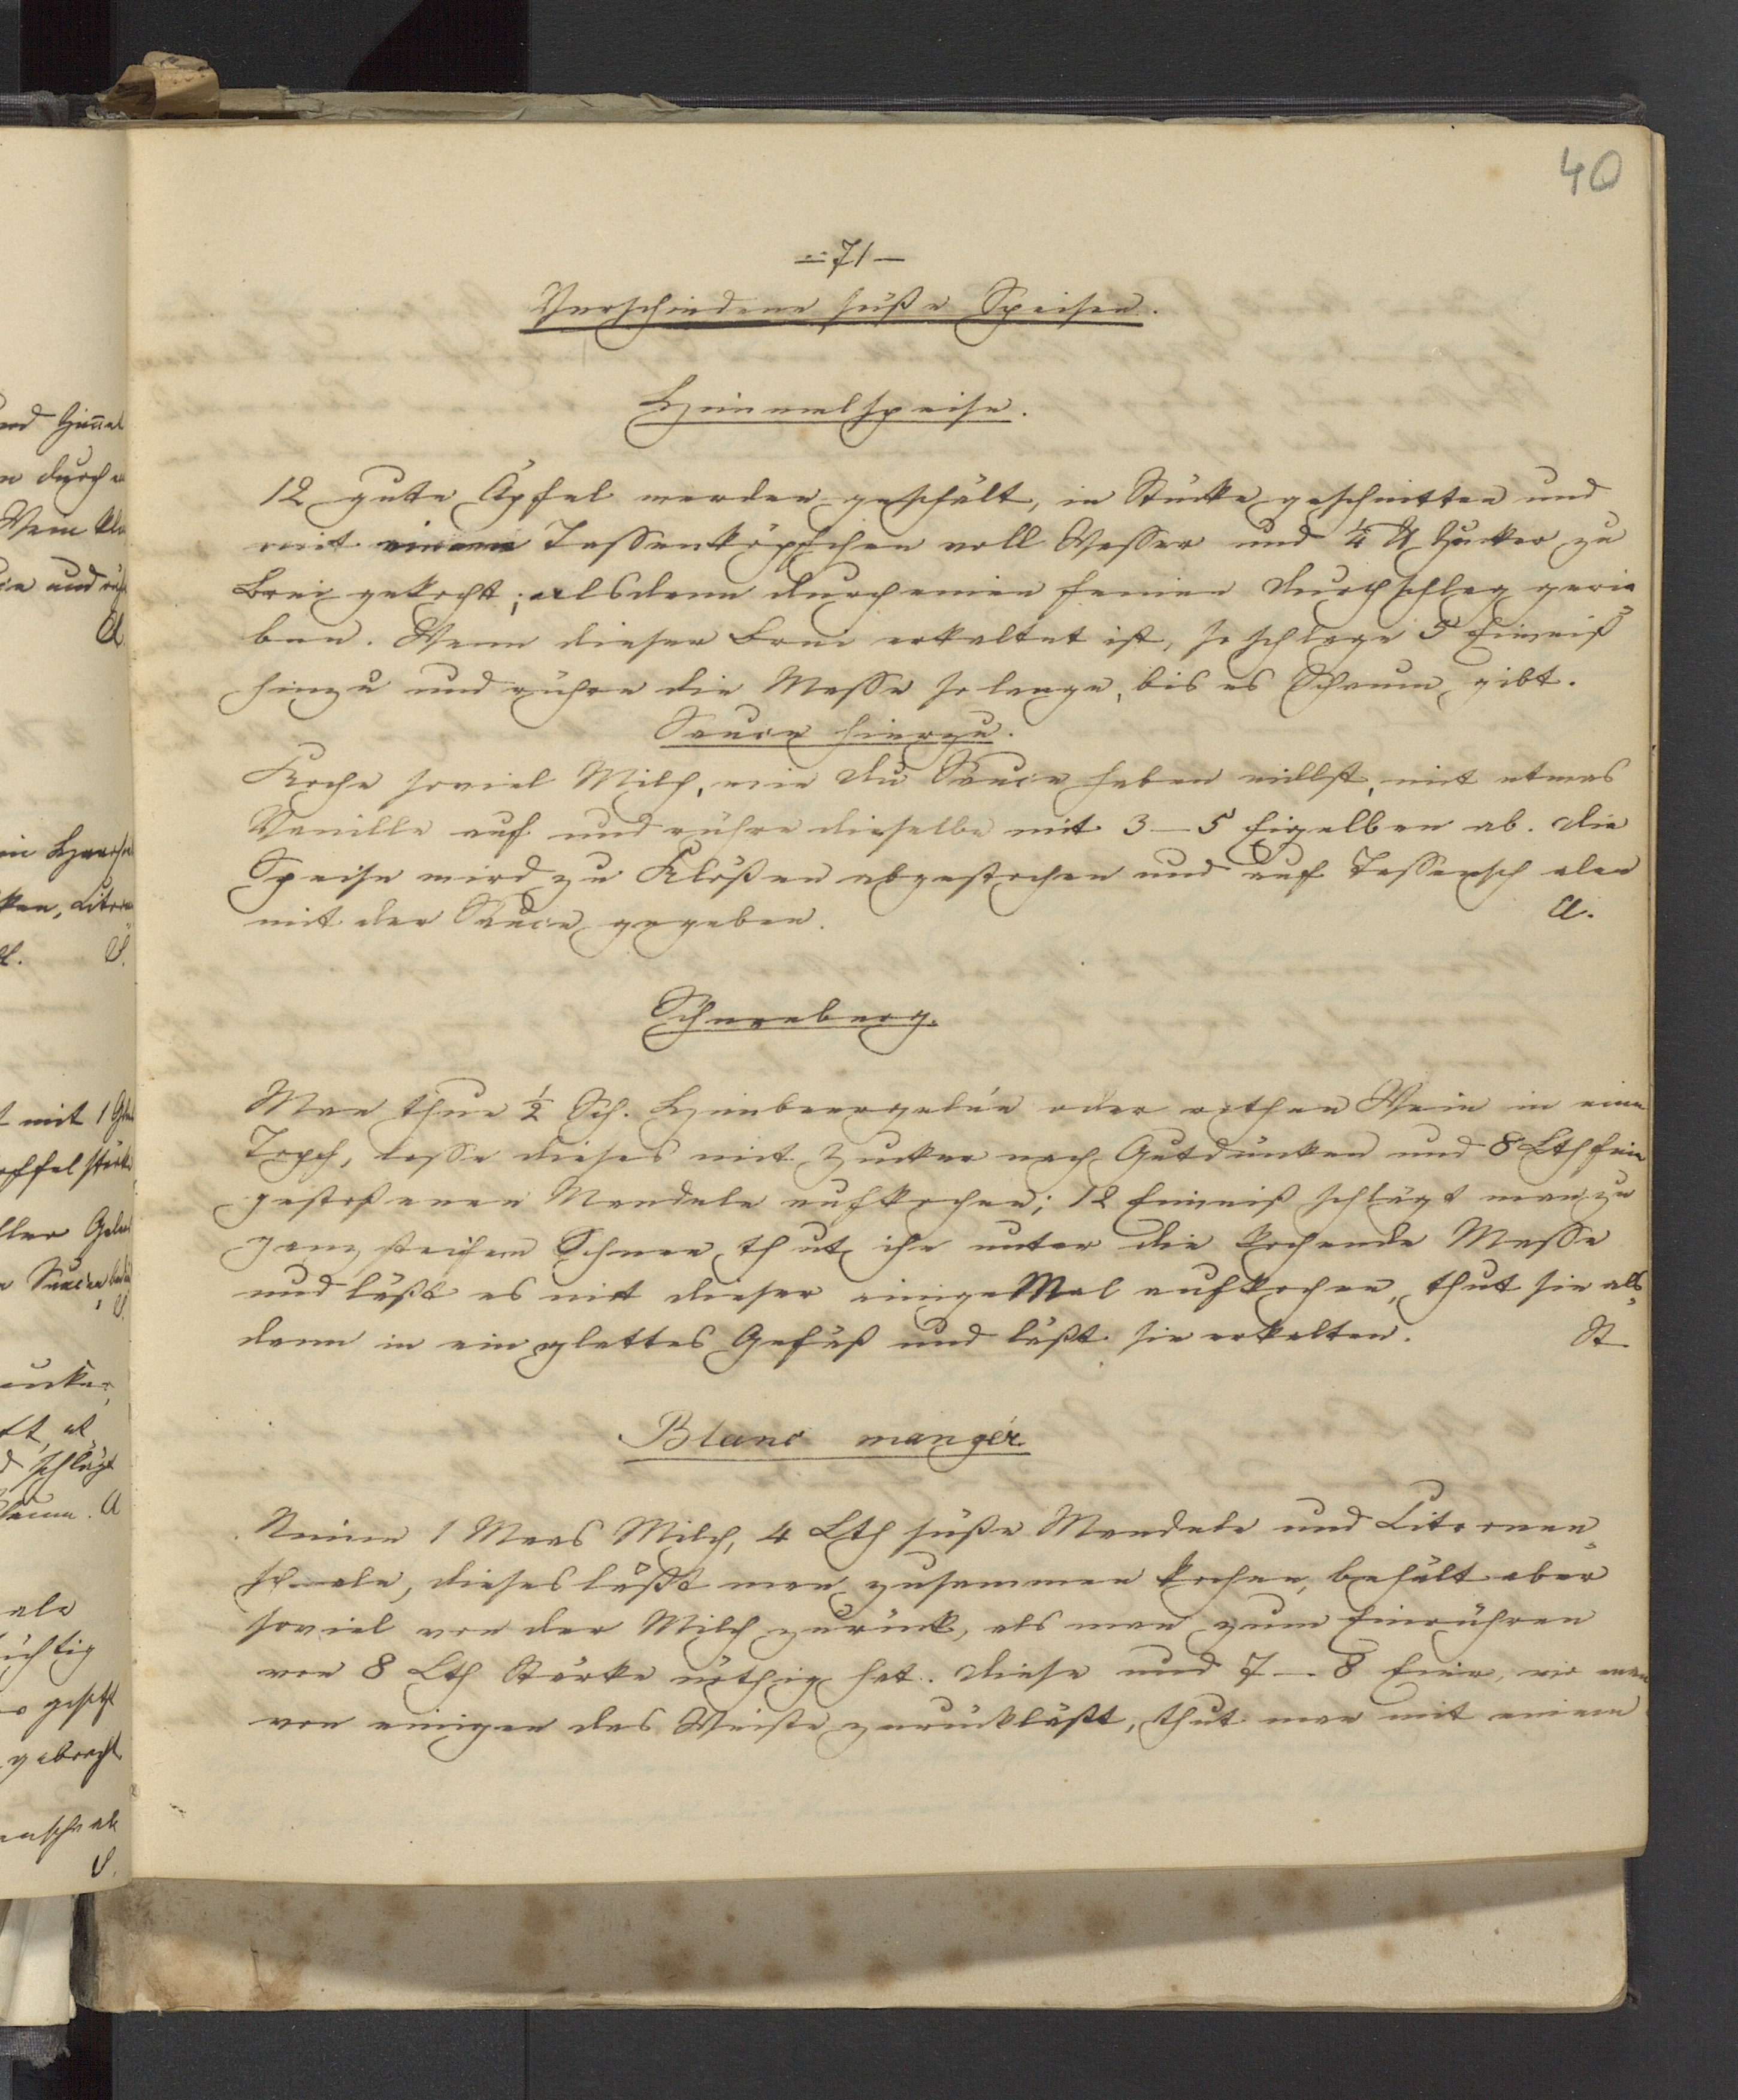 40
- 71 -
Verschiedene süße Speisen.
Himmelspeise.
12 gute Äpfel werden geschält, in Stücke geschnitten und
mit einem Tassenköpfchen voll Wasser und ¼ ℔ Zucker zu
Brei gekocht; alsdann durch einen feinen Durchschlag gerie
ben. Wenn dieser Brei erkaltet ist, so schlage 5 Eiweiß
hinzu und rühre die Masse so lange, bis es Schaum gibt.
Sauce hierzu.
Koche soviel Milch, wie du Sauce haben willst, mit etwas
Vanille auf und rühre dieselbe mit 3-5 Eigelben ab. Die
Speise wird zu Klößen abgestochen und auf Tassenschalen
mit der Sauce gegeben. A.
Schneeberg.
Man thue ½ Sch. Himbeergelée oder rothen Wein in einen
Topf, lasse dieses mit Zucker nach Gutdünken und 8 Lth fein
gestoßenen Mandeln aufkochen; 12 Eiweiß schlägt man zu
ganz steifem Schnee, thut ihn unter die kochende Masse
und läßt es mit dieser einige Mal aufkochen, thut sie als„
dann in ein glattes Gefäß und läßt sie erkalten. St.
Blanc mangér.
Nimm 1 Maas Milch, 4 Lth süße Mandeln und Citronen„
schale, dieses läßt man zusammen kochen, behält aber
soviel von der Milch zurück, als man zum Einrühren
von 8 Lth Stärke nöthig hat. Diese und 7-8 Eier, wo man
von einigen das Weiße zurückläßt, thut man mit einem